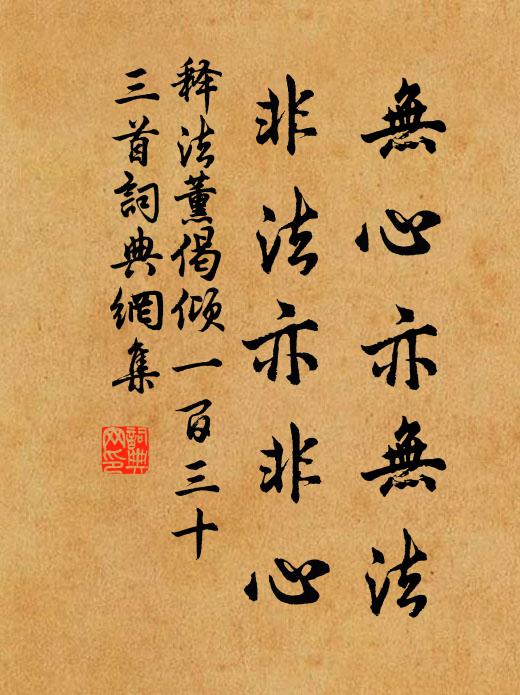 無心亦無法
非法亦非心
释法薰偈倾一百三十
三首詞典網集
詞典網印